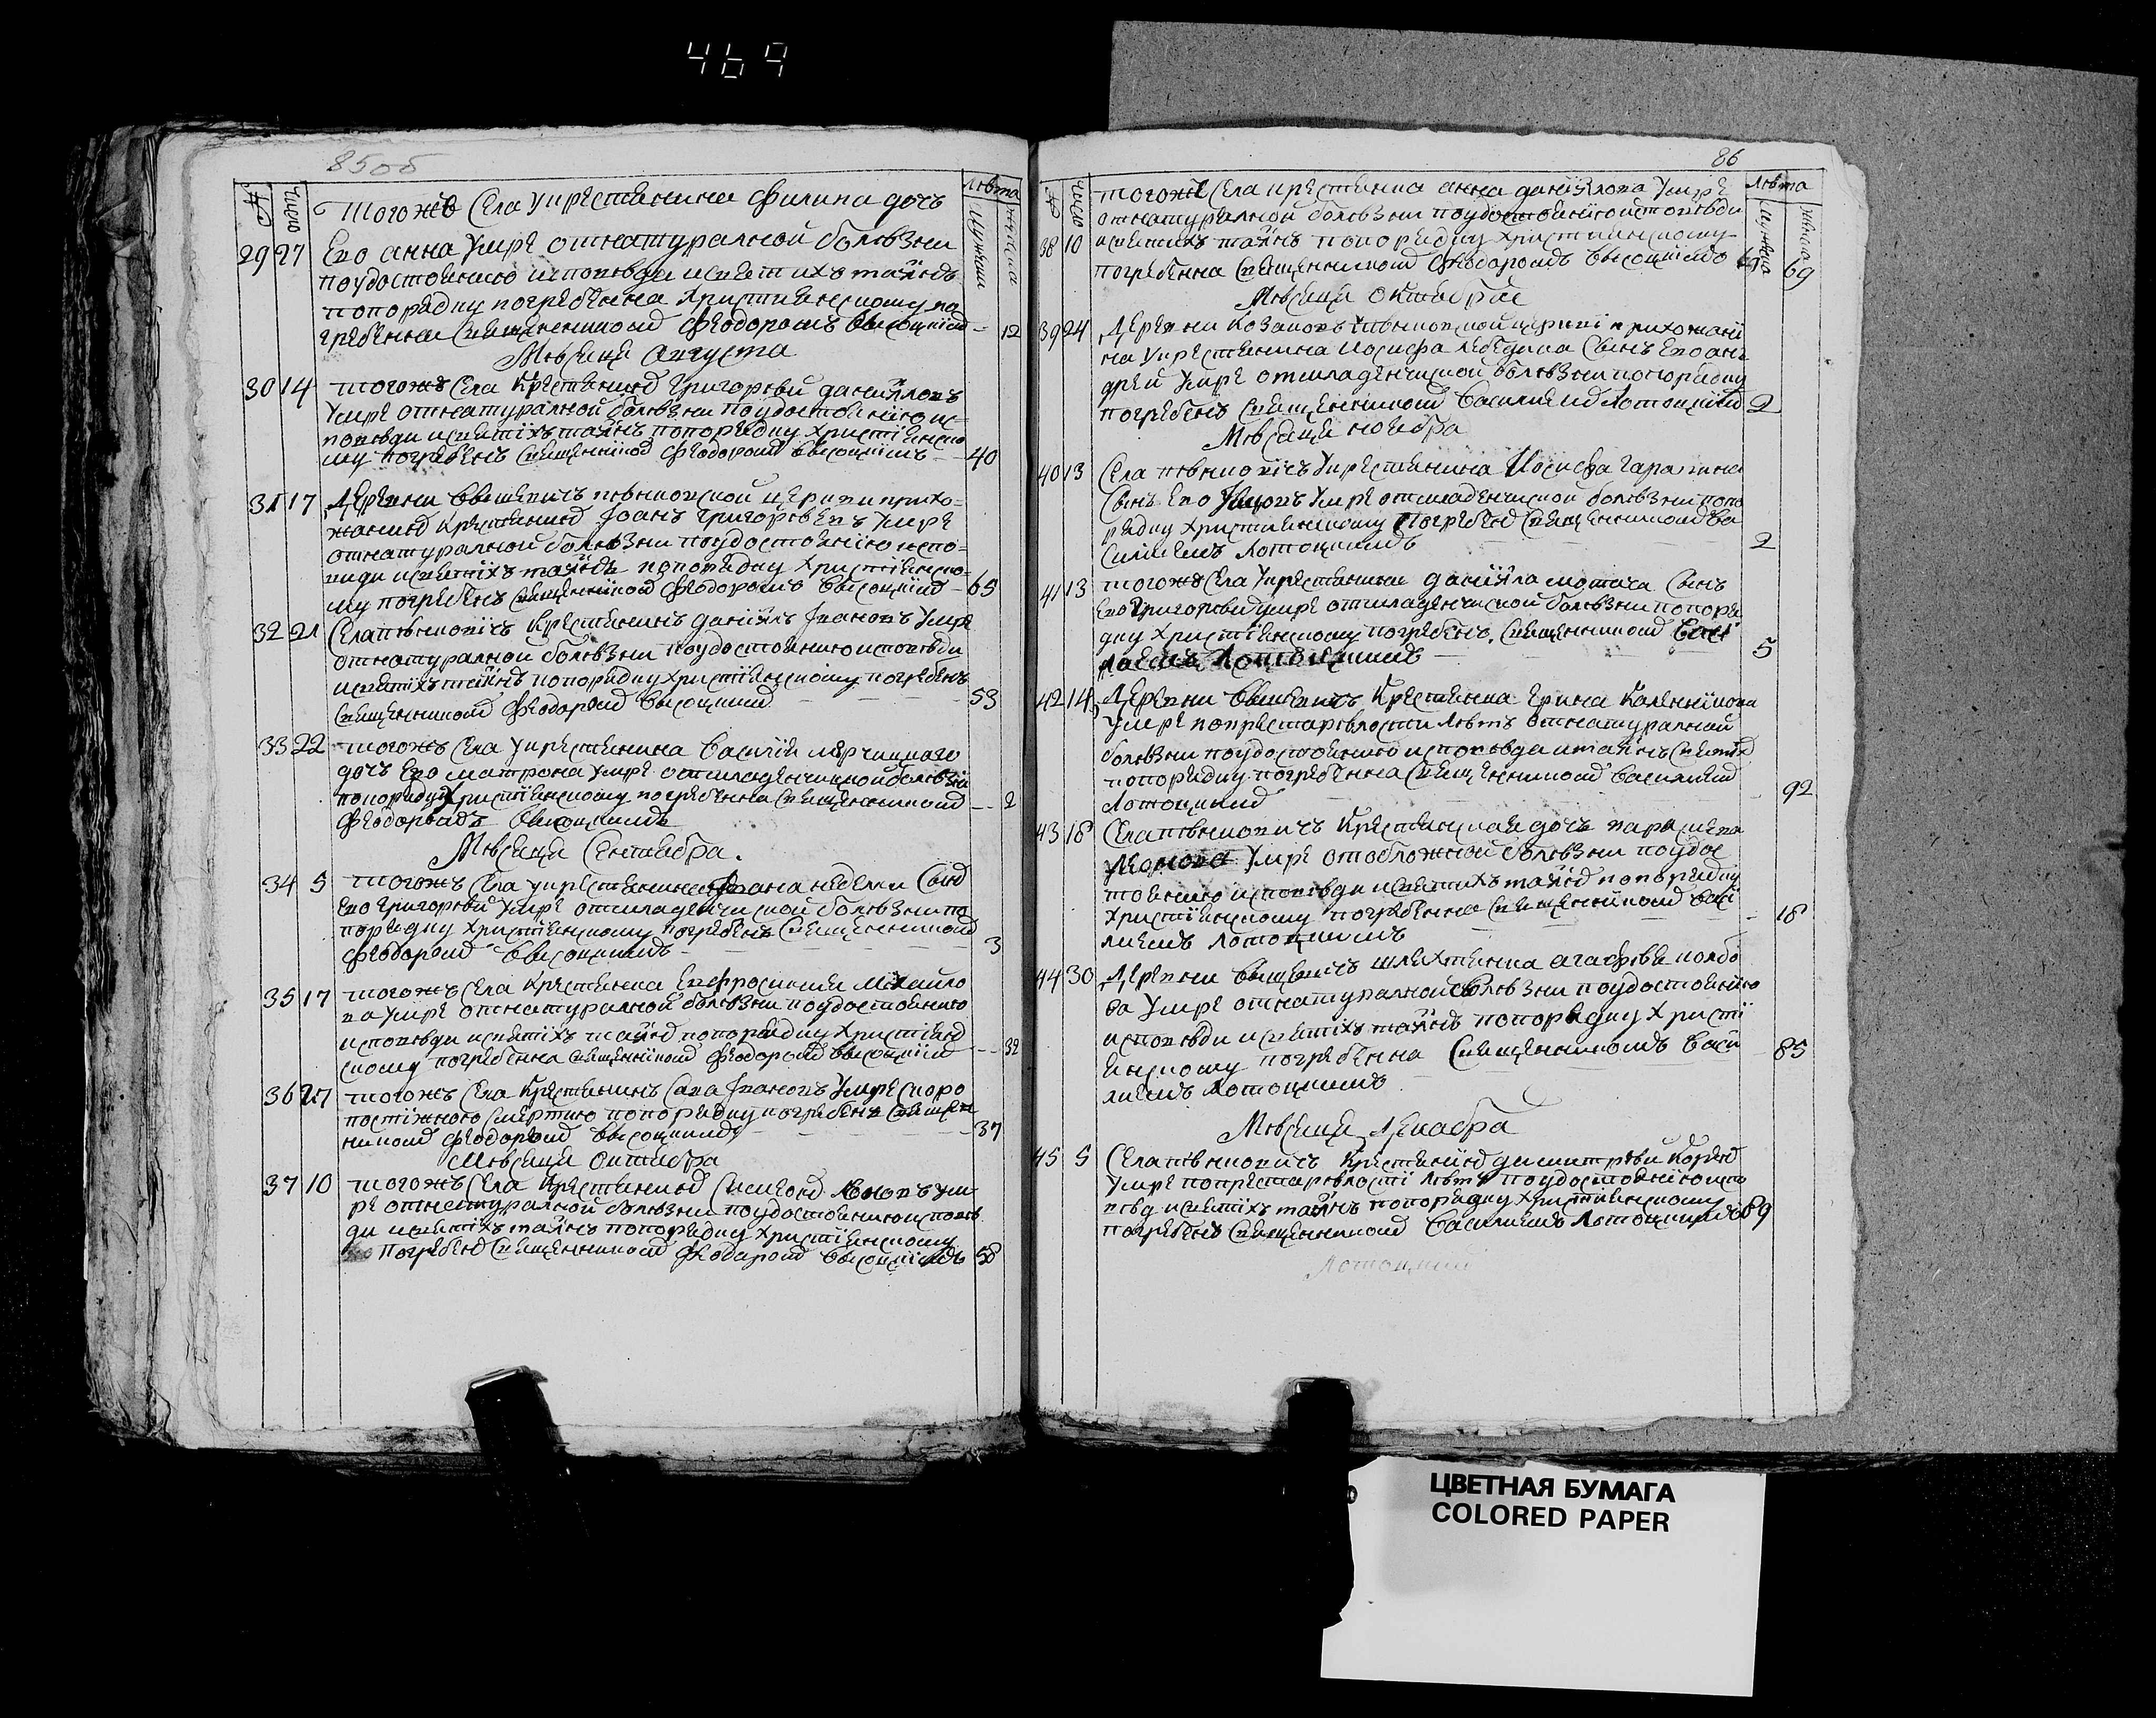 469
85об
№
Число
Лѣта
Мужска
Женска
тогожъ села крестянина Филипа дочъ
29 27 Его анна умре отнатуралной болѣзни
поудостоению исповѣди исвятихъ таинъ
попорядку погребенна християнскому по
гребенна священникомъ Феодоромъ Высоцкимъ - 12
Мѣсяця августа
30 14 тогожъ села крестянинъ Григорѣй данийловъ
умре отнатуралной болѣзни поудостоению ис=
повѣди исвятіхъ таинъ попорядку християнско
му погребенъ священникомъ Феодоромъ Высоцкимъ 40
31 17 Деревни
церкви прихо=
жанинъ крестянинъ Іоанъ Григорѣевъ умре
отнатуралной болѣзни поудостоению испо=
види исвятіхъ таинъ попорядку християнско=
му погребенъ священникомъ Феодоромъ Высоцкимъ - 65
32 21 Села
крестянинъ даніилъ Івановъ умре
отнатуралной болѣзни поудостоению исповѣди
исвятіхъ таинъ попорядку християнскому погребенъ
священникомъ Феодоромъ Высоцкимъ 53
33 22 тогожъ села крестянина Василия
дочъ Его матрона умре отмладенческой болѣзни
попорядку християнскому погребенна священникомъ - - 2
Феодоромъ Высоцкимъ
Мѣсяця Сентября.
34 5 тогожъ села крестянина Івана недели синъ
Его Григорѣй умре отмладенческой болѣзни по
порядку християнскому погребенъ священникомъ
Феодоромъ Высоцкимъ 3
35 17 тогожъ села крестянка Евфросиния Михайло
ва умре отнатуралной болѣзни поудостоению
исповѣди исвятіхъ таинъ попорядку християн
скому погребенна священникомъ Феодоромъ Высоцкимъ - - 32
36 27 тогожъ села крестянинъ Сава Івановъ умре скоро
постіжною смертию попорядку погребенъ священ
никомъ Феодоромъ Высоцкимъ 37
Мѣсяця октября
37 10 тогожъ села крестянинъ Симеонъ ум
ре отнатуралной болѣзни поудостоению исповѣ
ди исвятіхъ таинъ попорядку християнскому
погребенъ священникомъ Феодоромъ Высоцкимъ 58
86
№
Число
Лѣта
Мужска
Женска
тогоже села крестянка анна данийлова умре
отнатуралной болѣзни поудостоению исповѣди
38 10 исвятихъ таинъ попорядку християнскому
погребенна священникомъ Феодоромъ Высоцкимъ 69
Мѣсяця октября
39 24 Деревни
церкви прихожани
на крестянина Иосифа лебедина синъ Его ан
дрей умре отмладенческой болѣзни попорядку
погребенъ священникомъ Василиемъ Лотоцкимъ 2
Мѣсяця ноября
40 13 Села
крестянина Иосифа
синъ Его Яковъ умре отмладенческой болѣзни попо
рядку християнскому погребенъ священникомъ Ва
силиемъ Лотоцкимъ 2
41 13 тогожъ села крестянина данийла мотича синъ
Его Григорѣй умре отмладенческой болѣзни попоря
дку християнскому погребенъ. священникомъ Васи
лиемъ Лотоцкимъ 5
42 14 Деревни
крестянка Ерина
умре попрестарѣлости лѣтъ отнатуралной
болѣзни поудостоению исповѣди итаинъ святихъ
попорядку погребенна священникомъ василиемъ
Лотоцкимъ 92
43 18 Села
крестянская дочъ параскева
умре отобложной болѣзни поудос
тоению исповѣди исвятихъ таинъ попорядку
християнскому погребенна священникомъ васі
лиемъ Лотоцкимъ 18
44 30 Деревни
шляхтянка агафѣя колбо
ва умре отнатуралной болѣзни поудостоению
исповѣди исвятіхъ таинъ попорядку христі
янскому погребенна священникомъ васи
лиемъ Лотоцкимъ 85
Мѣсяця Декабря
45 5 Села
крестянинъ димитрѣй
умре попрестарѣлості лѣтъ поудостоению испо
вѣд исвятіхъ таинъ попорядку християнскому
погребенъ священникомъ Василиемъ Лотоцкимъ 89
Лотоцкий
ЦВЕТНАЯ БУМАГА
COLORED PAPER